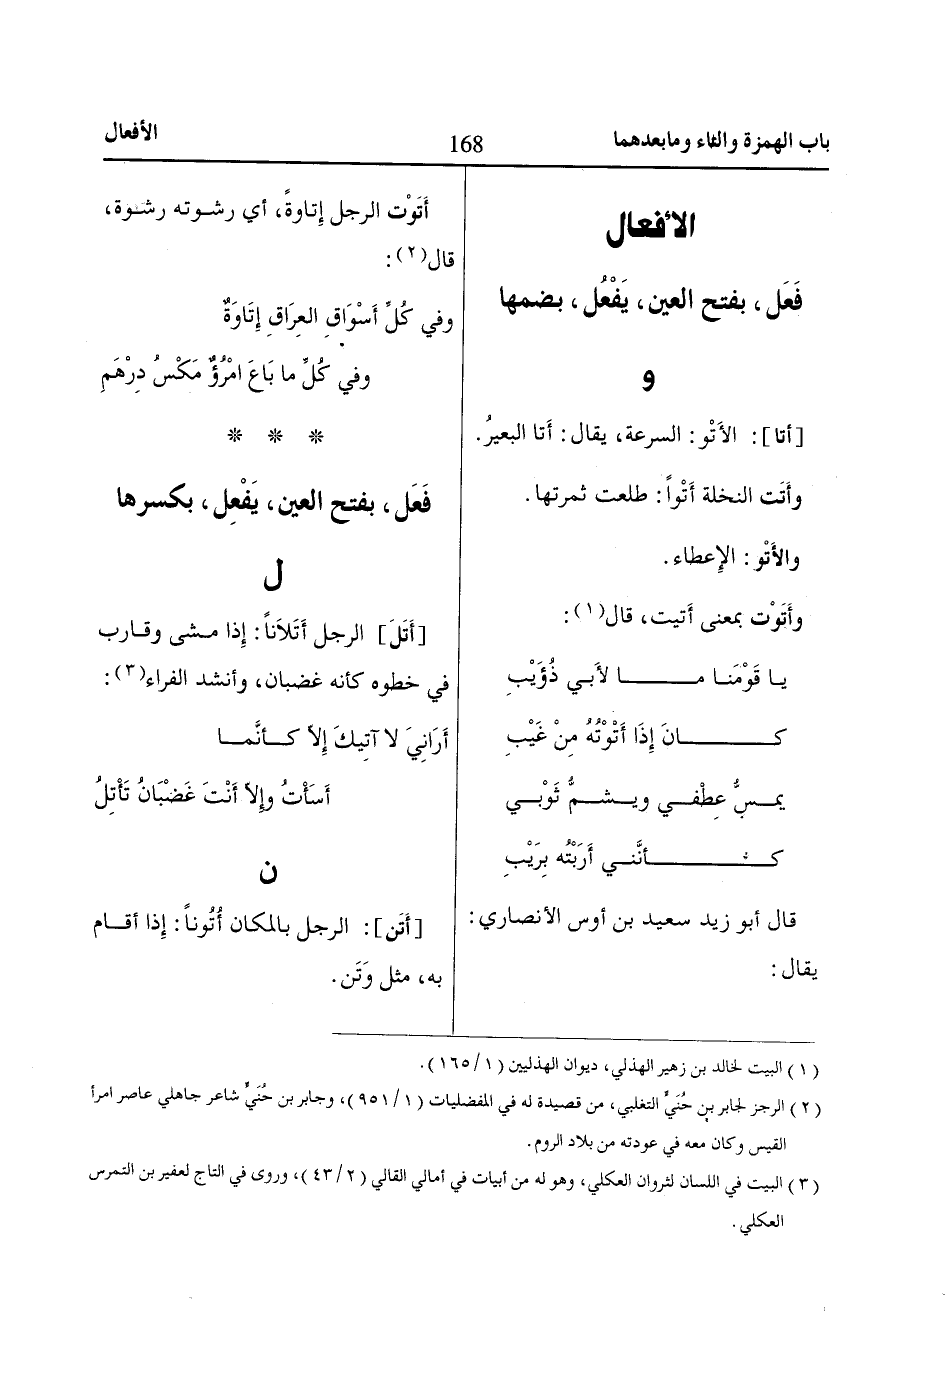 باب الهمزة والثاء ومابعدهما
168
الأفعال
الأفعال
فَعَل، بفتح العين، يَفْعُل، بضمها
و
[أتا]: الأَتْو: السرعة، يقال: أتا البعيرُ.
وأتَت النخلة أتْواً: طلعت ثمرتها.
والأَتْو: الإِعطاء.
وأَتَوْت بمعنى أتيت، قال(١):
يـا قَوْمَنـا مـــــا لأَبـي ذُؤَيْبِ
كـــــانَ إِذَا أَتَوْتُهُ مِنْ غَيْبِ
يمـسُّ عِطْفـي ويـشـمُّ ثَوْبـي
كـــــأنَّنـي أَرَبْتُه بِرَيْبِ
قال أبو زيد سعيد بن أوس الأنصاري:
يقال:
أَتَوْت الرجل إِتاوةً، أي رشـوته رشـوة،
قال(٢):
وفي كُلِّ أَسْوَاقِ العِرَاقِ إِتَاوَةٌ
وفي كُلِّ ما بَاعَ امْرُؤٌ مَكْسُ دِرْهَمِ
* * *
فَعَل، بفتح العين، يَفْعِل، بكسرها
ل
[أَتَلَ] الرجل أَتَلاَناً: إِذا مـشى وقـارب
في خطوه كأنه غضبان، وأنشد الفراء(٣):
أرَانِيَ لا آتِيكَ إِلاّ كـأنَّمـا
أسَأْتُ وإِلاّ أنْتَ غَضْبَانُ تَأْتِلُ
ن
[أتَن]: الرجل بالمكان أُتُوناً: إِذا أقـام
به، مثل وَتَن.
(١) البيت لخالد بن زهير الهذلي، ديوان الهذليين (١/١٦٥).
(٢) الرجز لجابر بن حُنَيٍّ التغلبي، من قصيدة له في المفضليات (١/٩٥١)، وجابر بن حُنَيٍّ شاعر جاهلي عاصر امرأ
القيس وكان معه في عودته من بلاد الروم.
(٣) البيت في اللسان لثروان العكلي، وهو له من أبيات في أمالي القالي (٢/٤٣)، وروى في التاج لعفير بن التمرس
العكلي.